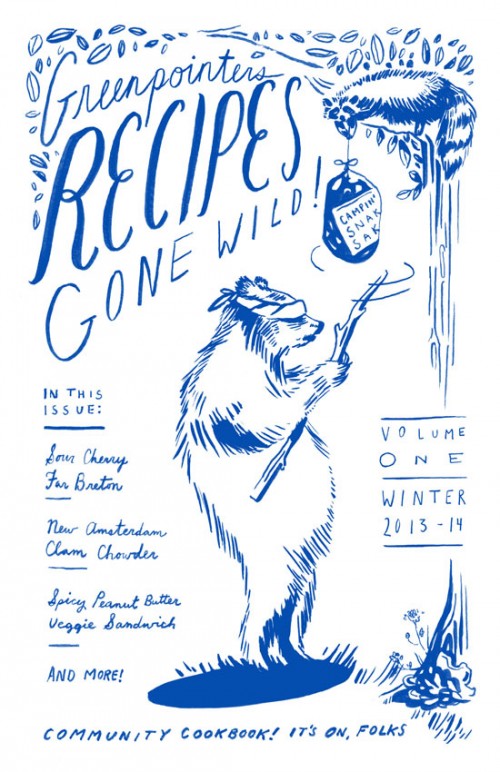 Greenpointers
RECIPES
GONE WILD!
CAMPIN'
SNAK
SAK
IN THIS
ISSUE:
Sour Cherry
Far Breton
New Amsterdam
Clam Chowder
Spicy Peanut Butter
Veggie Sandwich
AND MORE!
VOLUME
ONE
WINTER
2013-14
COMMUNITY COOKBOOK! IT'S ON, FOLKS